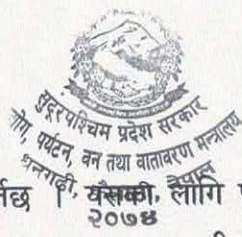 सुदूरपश्चिम प्रदेश सरकार
उद्योग, पर्यटन, वन तथा वातावरण मन्त्रालय
धनगढी, नेपाल
र्नेछ । यसका लागि
२०७४